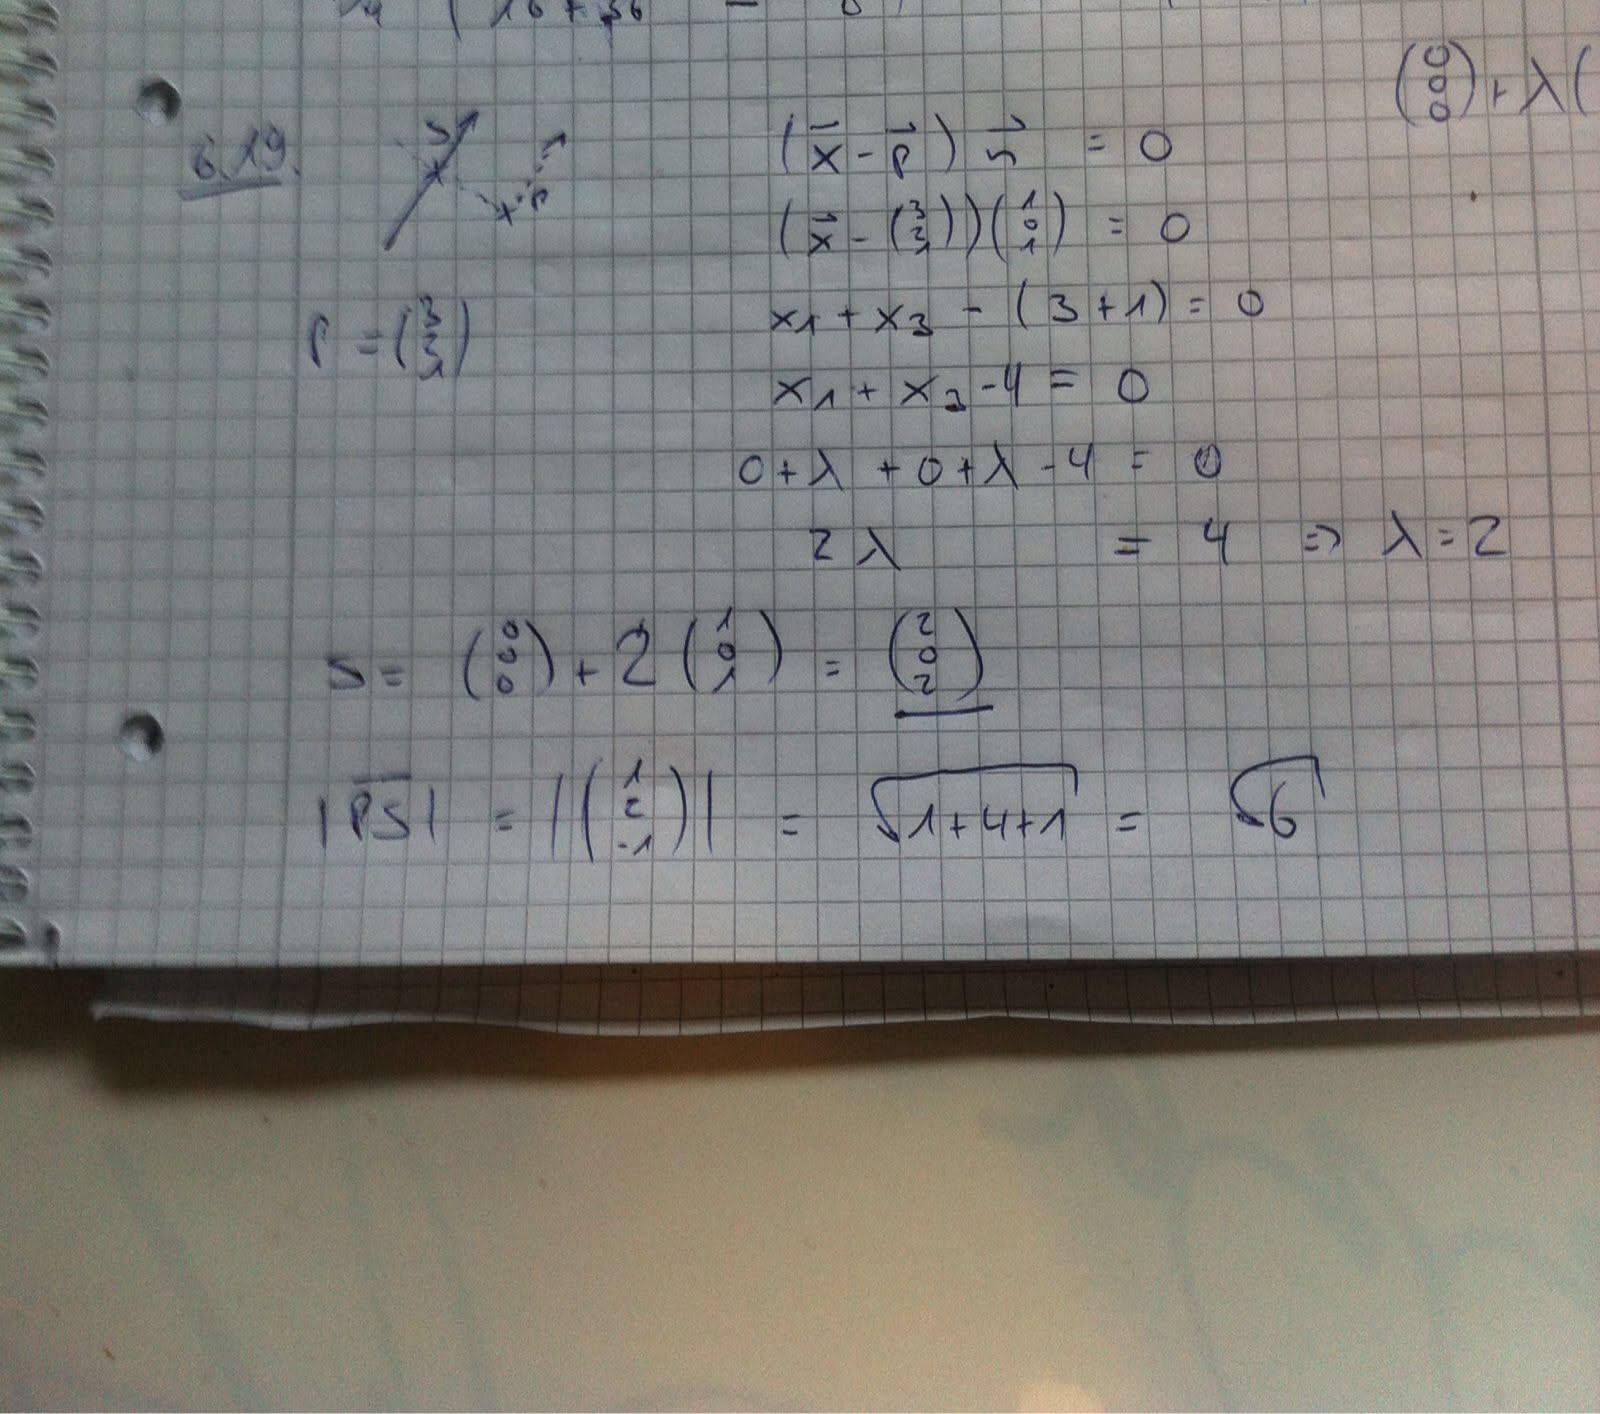 16 + 36 =
(0 0 0) + λ (
6.19.
S
P
(x⃗ - p⃗) n⃗ = 0
(x⃗ - (3 2 1)) (1 0 1) = 0
P = (3 2 1)
x₁ + x₃ - (3 + 1) = 0
x₁ + x₃ - 4 = 0
0 + λ + 0 + λ - 4 = 0
2 λ = 4 => λ = 2
S = (0 0 0) + 2 (1 0 1) = (2 0 2)
|PS| = |(1 2 -1)| = √1+4+1 = √6